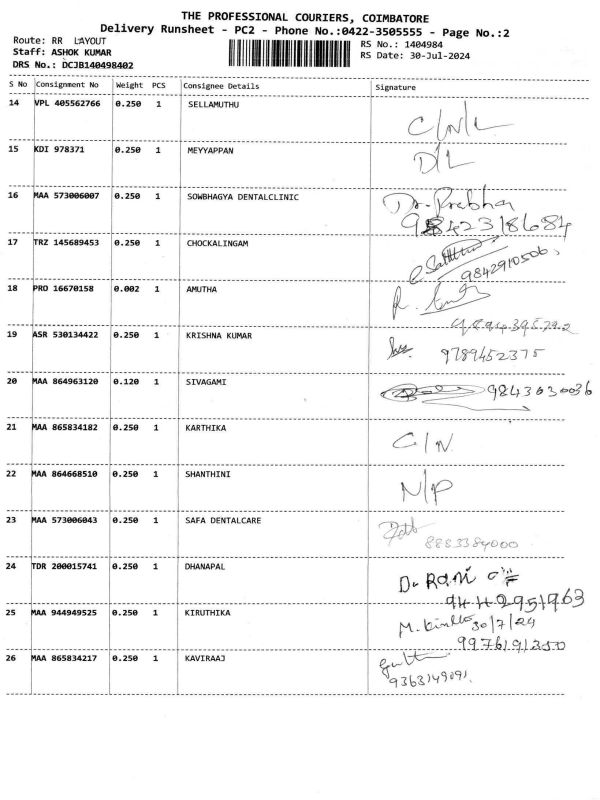 THE PROFESSIONAL COURIERS, COIMBATORE
Delivery Runsheet - PC2 - Phone No.:0422-3505555 - Page No.:2
Route: RR LAYOUT
Staff: ASHOK KUMAR
DRS No.: DCJB140498402
RS No.: 1404984
RS Date: 30-Jul-2024
S No Consignment No Weight PCS Consignee Details Signature
14 VPL 405562766 0.250 1 SELLAMUTHU C/N/L
15 KDI 978371 0.250 1 MEYYAPPAN D/L
16 MAA 573006007 0.250 1 SOWBHAGYA DENTALCLINIC Dr. Prabha
9842318684
17 TRZ 145689453 0.250 1 CHOCKALINGAM
9842910506
18 PRO 16670158 0.002 1 AMUTHA
9894395792
19 ASR 530134422 0.250 1 KRISHNA KUMAR 9789452375
20 MAA 864963120 0.120 1 SIVAGAMI 9843630036
21 MAA 865834182 0.250 1 KARTHIKA C/N
22 MAA 864668510 0.250 1 SHANTHINI N/P
23 MAA 573006043 0.250 1 SAFA DENTALCARE
8883384000
24 TDR 200015741 0.250 1 DHANAPAL Dr RANI
9442951963
25 MAA 944949525 0.250 1 KIRUTHIKA 30/7/24
9976191250
26 MAA 865834217 0.250 1 KAVIRAAJ
9363149091